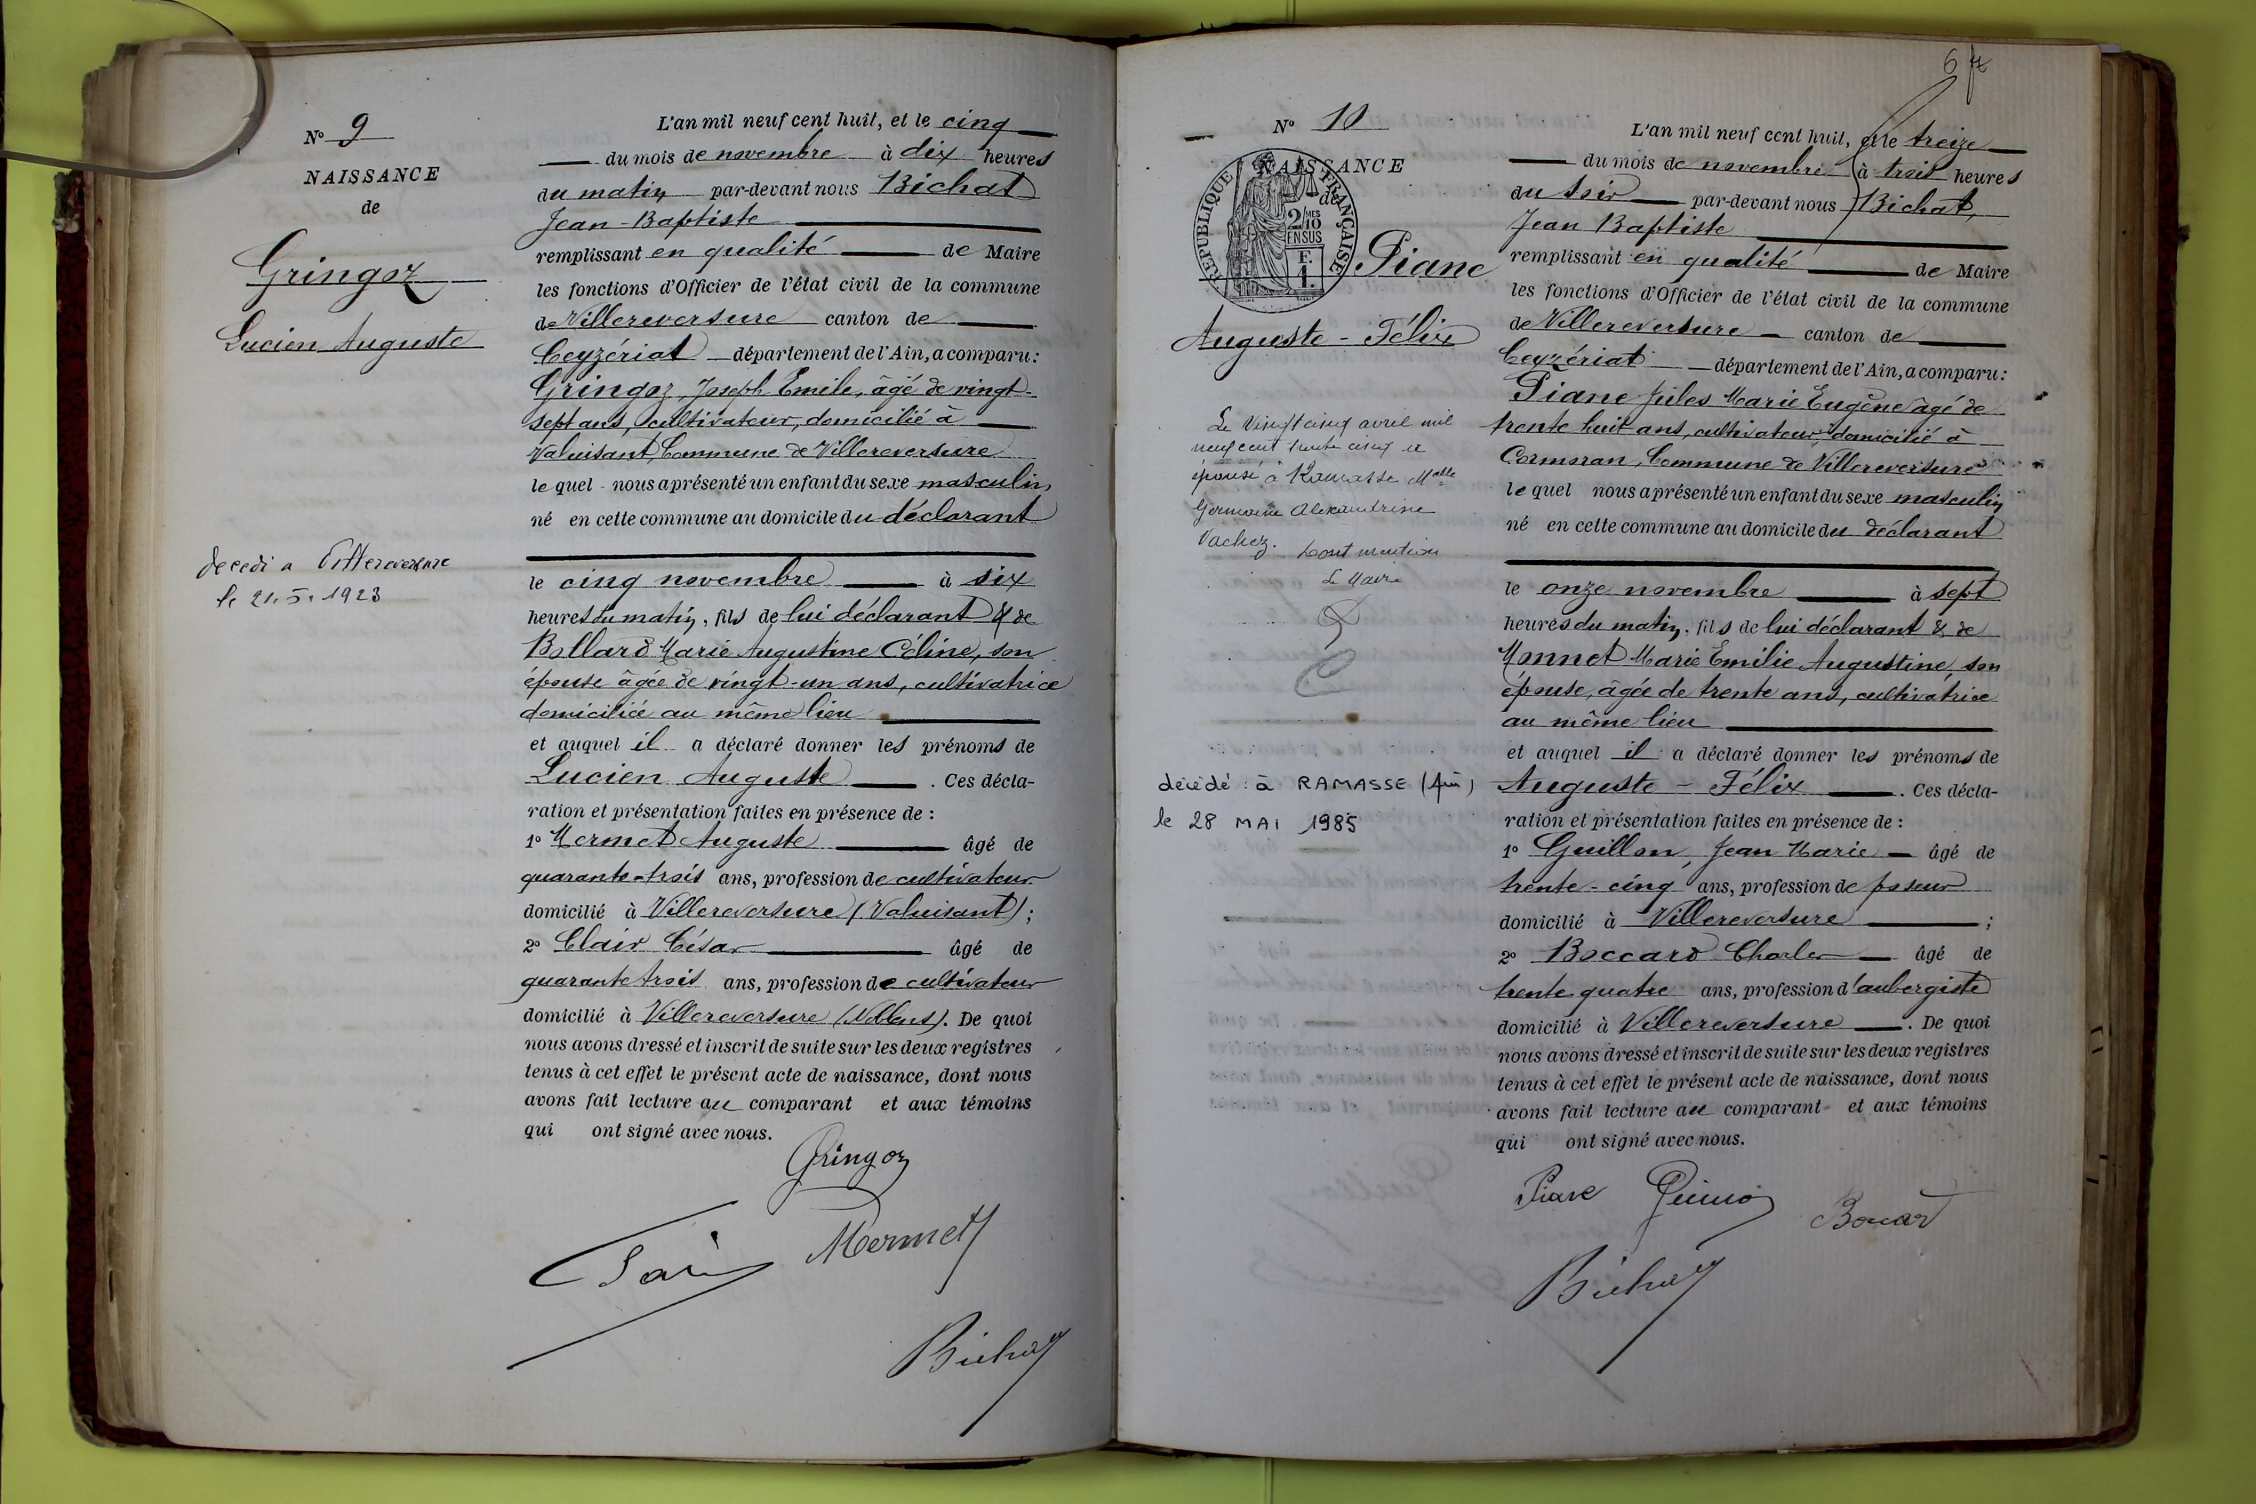 N° 9
NAISSANCE
de
Gringoz
Lucien Auguste
décédé a Villereversure
le 21.5.1923
L'an mil neuf cent huit, et le cinq
du mois de novembre à dix heures
du matin par-devant nous Bichat
Jean-Baptiste
remplissant en qualité de Maire
les fonctions d'Officier de l'état civil de la commune
de Villereversure canton de
Ceyzériat département de l'Ain, a comparu:
Gringoz, Joseph Emile, âgé de vingt-
sept ans, cultivateur, domicilié à
Valuisant, Commune de Villereversure
le quel nous a présenté un enfant du sexe masculin
né en cette commune au domicile du déclarant
le cinq novembre à six
heures du matin, fils de lui déclarant & de
Bollard Marie Augustine Céline, son
épouse âgée de vingt-un ans, cultivatrice
domiciliée au même lieu
et auquel il a déclaré donner les prénoms de
Lucien Auguste. Ces décla-
ration et présentation faites en présence de :
1° Mermet Auguste âgé de
quarante-trois ans, profession de cultivateur
domicilié à Villereversure (Valuisant);
2° Clair César âgé de
quarante trois ans, profession de cultivateur
domicilié à Villereversure (Noblens). De quoi
nous avons dressé et inscrit de suite sur les deux registres
tenus à cet effet le présent acte de naissance, dont nous
avons fait lecture au comparant et aux témoins
qui ont signé avec nous.
Gringoz
Clair Mermet
Bichat
6
N° 10
NAISSANCE
de
REPUBLIQUE FRANÇAISE
2/10 MES
EN SUS
F.
1.
Piane
Auguste-Félix
Le Vingt cinq avril mil
neuf cent trente cinq a
épousé à Ramasse Melle
Germaine Alexandrine
Vachez. Dont mention
Le Maire
décédé à RAMASSE (Ain)
le 28 MAI 1985
L'an mil neuf cent huit, et le treize
du mois de novembre à trois heures
du soir par-devant nous Bichat,
Jean Baptiste
remplissant en qualité de Maire
les fonctions d'Officier de l'état civil de la commune
de Villereversure canton de
Ceyzériat département de l'Ain, a comparu:
Piane Jules Marie Eugène âgé de
trente huit ans, cultivateur, domicilié à
Cormoran, Commune de Villereversure
le quel nous a présenté un enfant du sexe masculin
né en cette commune au domicile du déclarant
le onze novembre à sept
heures du matin, fils de lui déclarant & de
Monnet Marie Emilie Augustine, son
épouse, âgée de trente ans, cultivatrice
au même lieu
et auquel il a déclaré donner les prénoms de
Auguste-Félix. Ces décla-
ration et présentation faites en présence de :
1° Guillon, Jean Marie âgé de
trente-cinq ans, profession de poseur
domicilié à Villereversure ;
2° Boccard Charles âgé de
trente quatre ans, profession d'aubergiste
domicilié à Villereversure. De quoi
nous avons dressé et inscrit de suite sur les deux registres
tenus à cet effet le présent acte de naissance, dont nous
avons fait lecture au comparant et aux témoins
qui ont signé avec nous.
Piane Guillon Boccard
Bichat